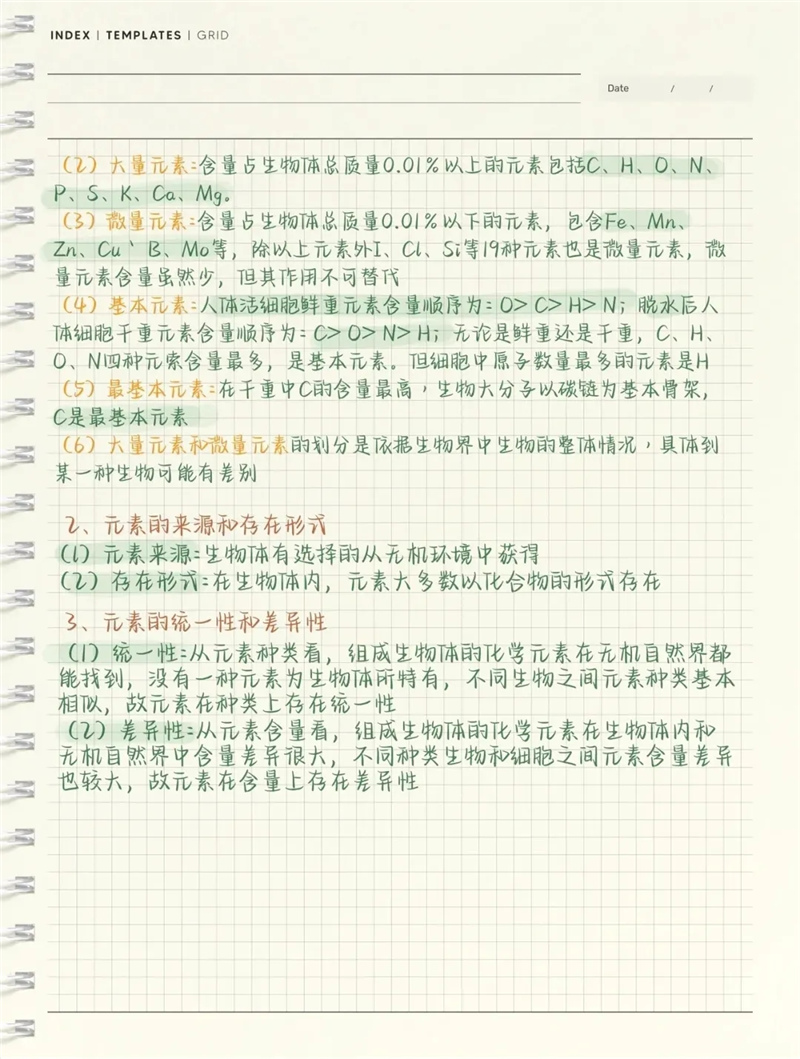 INDEX | TEMPLATES | GRID
Date / /
(2) 大量元素:含量占生物体总质量0.01%以上的元素包括C、H、O、N、
P、S、K、Ca、Mg。
(3) 微量元素:含量占生物体总质量0.01%以下的元素，包含Fe、Mn、
Zn、Cu、B、Mo等，除以上元素外I、Cl、Si等19种元素也是微量元素，微
量元素含量虽然少，但其作用不可替代
(4) 基本元素:人体活细胞鲜重元素含量顺序为:O>C>H>N；脱水后人
体细胞干重元素含量顺序为:C>O>N>H；无论是鲜重还是干重，C、H、
O、N四种元素含量最多，是基本元素。但细胞中原子数量最多的元素是H
(5) 最基本元素:在干重中C的含量最高，生物大分子以碳链为基本骨架，
C是最基本元素
(6) 大量元素和微量元素的划分是依据生物界中生物的整体情况，具体到
某一种生物可能有差别
2、元素的来源和存在形式
(1) 元素来源:生物体有选择的从无机环境中获得
(2) 存在形式:在生物体内，元素大多数以化合物的形式存在
3、元素的统一性和差异性
(1) 统一性:从元素种类看，组成生物体的化学元素在无机自然界都
能找到，没有一种元素为生物体所特有，不同生物之间元素种类基本
相似，故元素在种类上存在统一性
(2) 差异性:从元素含量看，组成生物体的化学元素在生物体内和
无机自然界中含量差异很大，不同种类生物和细胞之间元素含量差异
也较大，故元素在含量上存在差异性